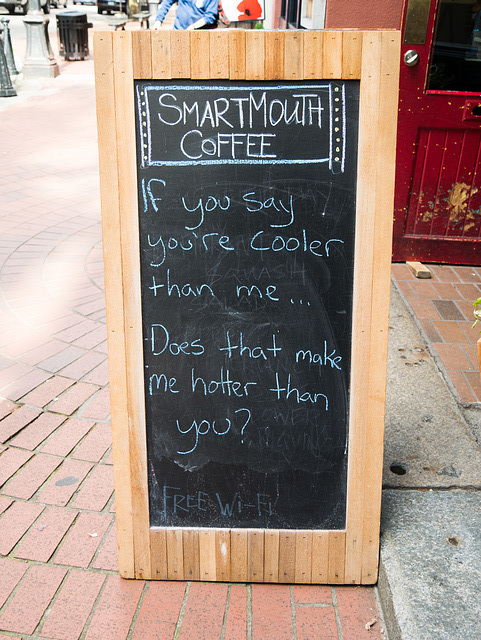 SMARTMOUTH
COFFEE
IF you say
you're cooler
than me...
Does that make
me hotter than
you?
FREE WI-FI